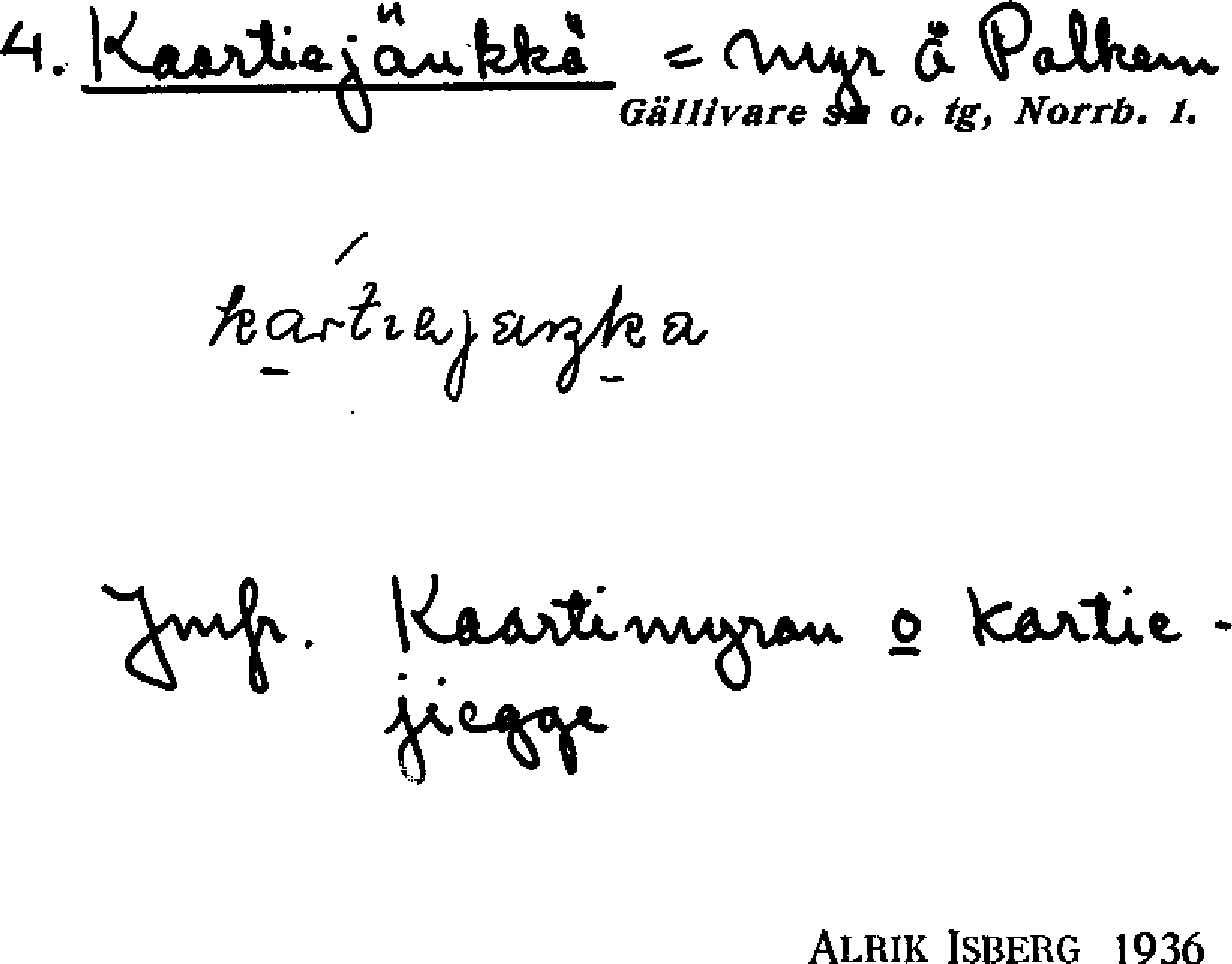 4. Kaartiejänkkä = myr å Palkem
Gällivare sn o. tg, Norrb. l.
Jmfr. Kaartimyran o Kartie-
jiegge
ALRIK ISBERG 1936